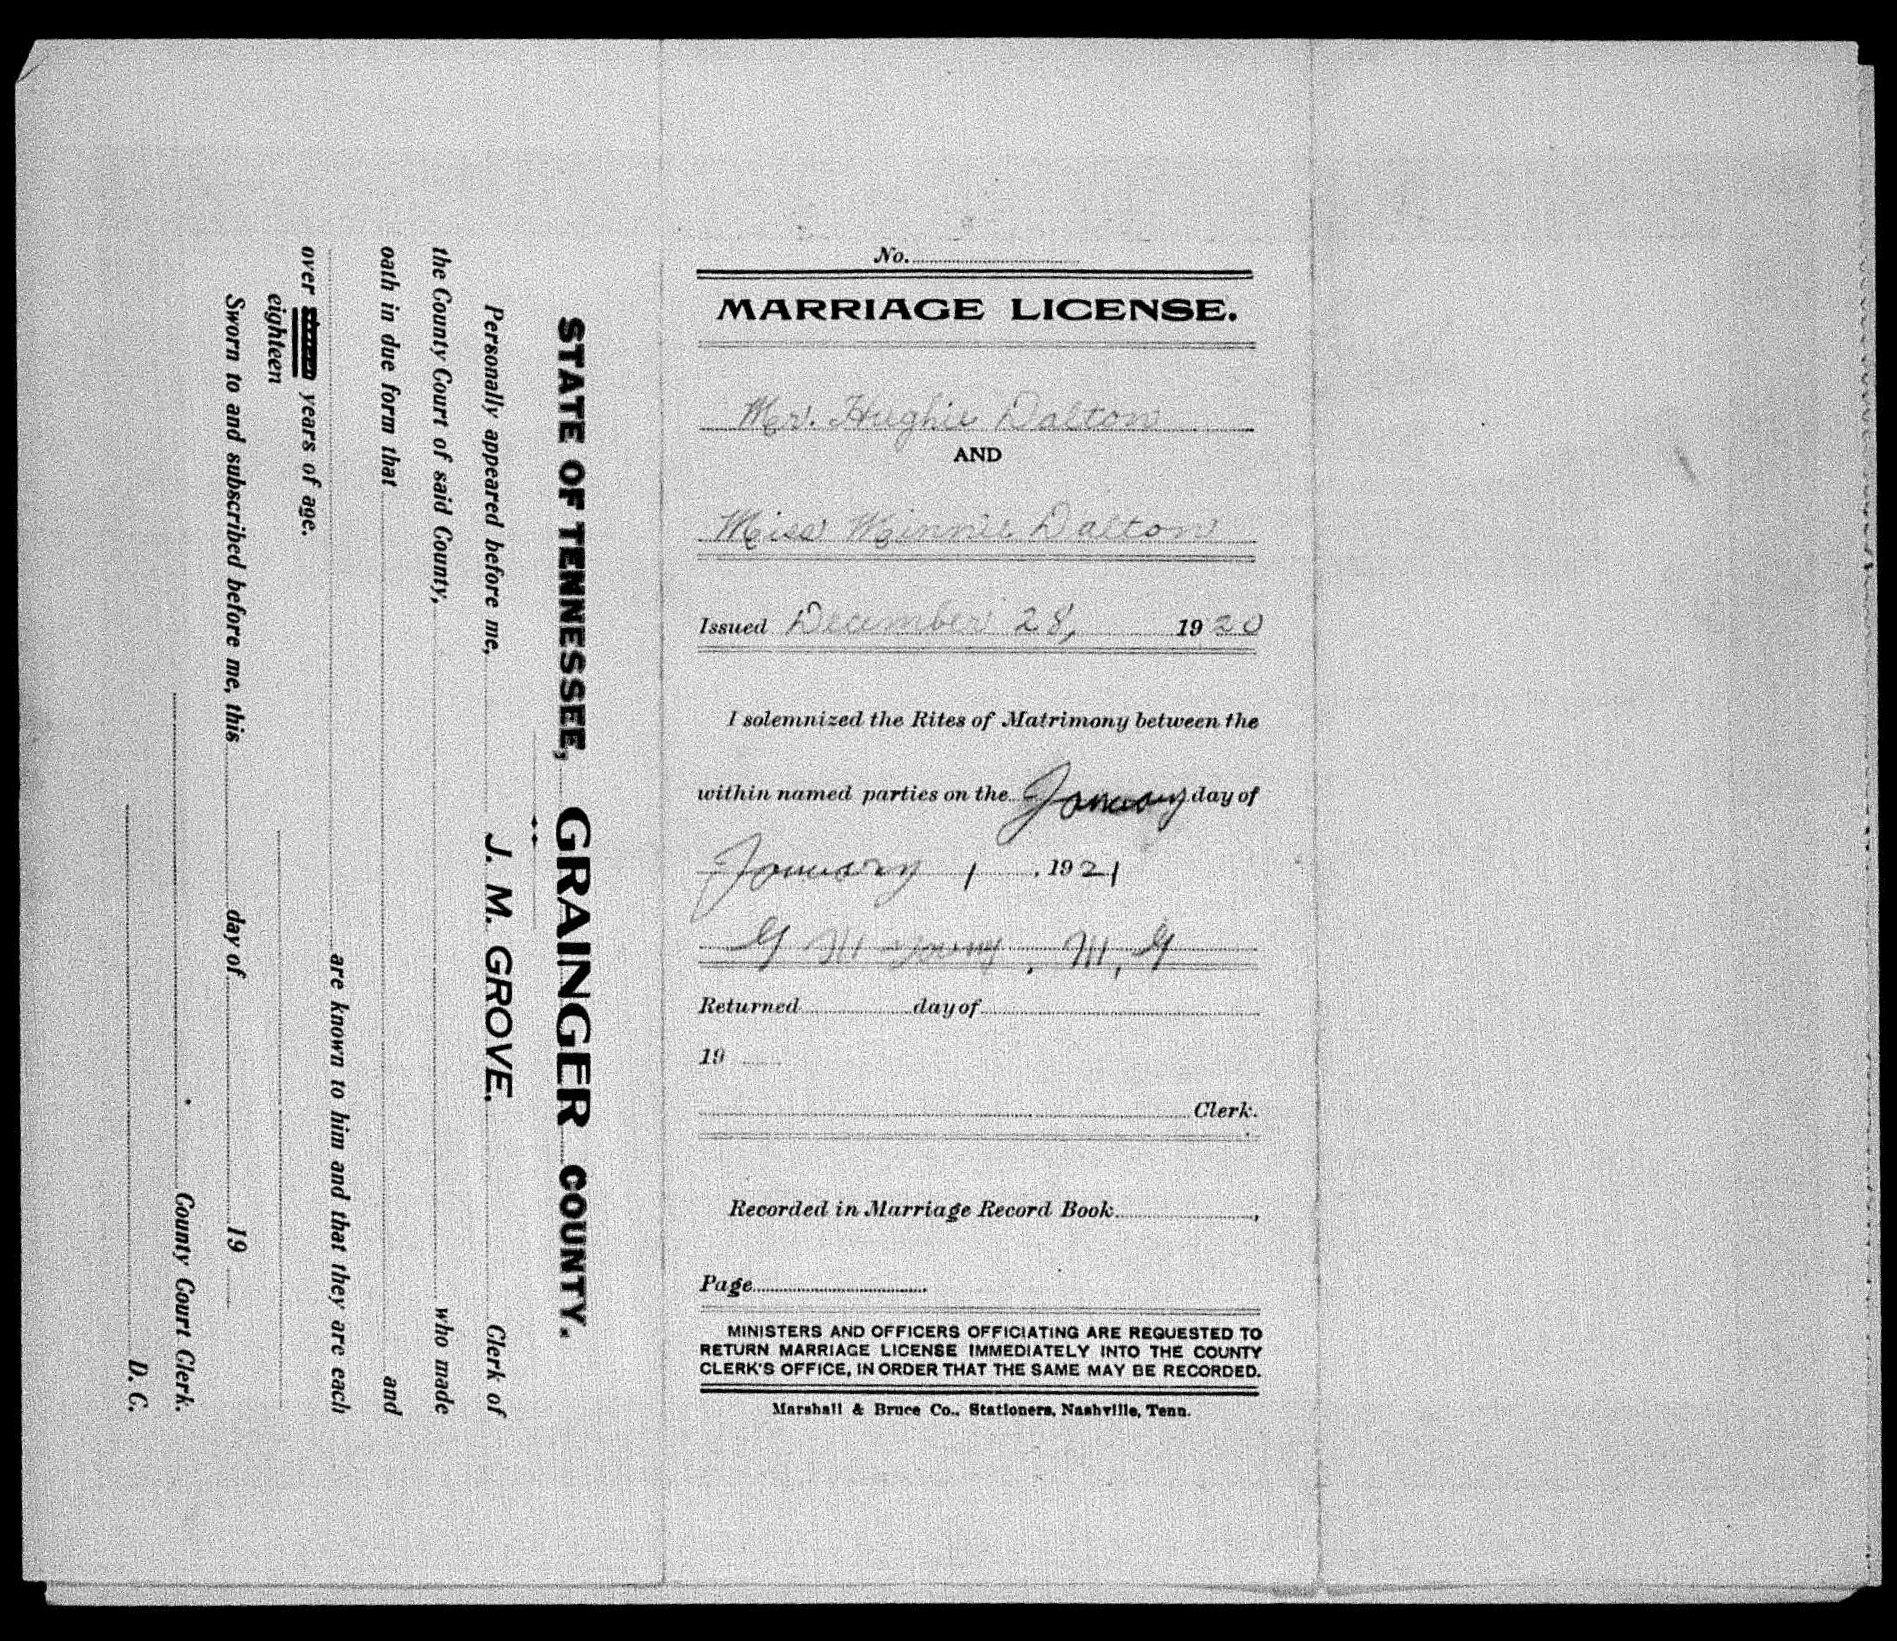 STATE OF TENNESSEE, GRAINGER COUNTY.
Personally appeared before me, J. M. GROVE. Clerk of
the County Court of said County, who made
oath in due form that and
are known to him and that they are each
over years of age.
eighteen
Sworn to and subscribed before me, this day of 19
County Court Clerk.
D. C.
No.
MARRIAGE LICENSE.
Mr. Hughie Dalton
AND
Miss Minnie Dalton
Issued December 28, 1920
I solemnized the Rites of Matrimony between the
within named parties on the January day of
January 1, 1921
G M M. G
Returned day of
19
Clerk.
Recorded in Marriage Record Book ,
Page
MINISTERS AND OFFICERS OFFICIATING ARE REQUESTED TO
RETURN MARRIAGE LICENSE IMMEDIATELY INTO THE COUNTY
CLERK'S OFFICE, IN ORDER THAT THE SAME MAY BE RECORDED.
Marshall & Bruce Co., Stationers, Nashville, Tenn.